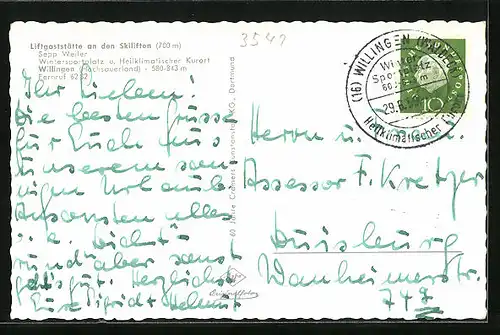 Liftgaststätte an den Skiliften (700 m)
Sepp Weiler
Wintersportplatz u. Heilklimatischer Kurort
Willingen (Hochsauerland) - 580-843 m
Fernruf 6232
3541
Ihr Lieben!
Die besten Grüsse
für Euch aus
unserem son-
nigen Urlaub.
Ansonsten alles
"dicht"
rund aber sonst
geht's gut. Herzlichst
Eure Sigrid + Helmut
60 Jahre Cramers Kunstanstalt KG., Dortmund
(16) WILLINGEN (UPLAND)
Winter-
Sportplatz
29.
Heilklimatischer Kurort
10
Herrn u. Frau
Assessor F. Kretzer
Duisburg
Wanheimerstr.